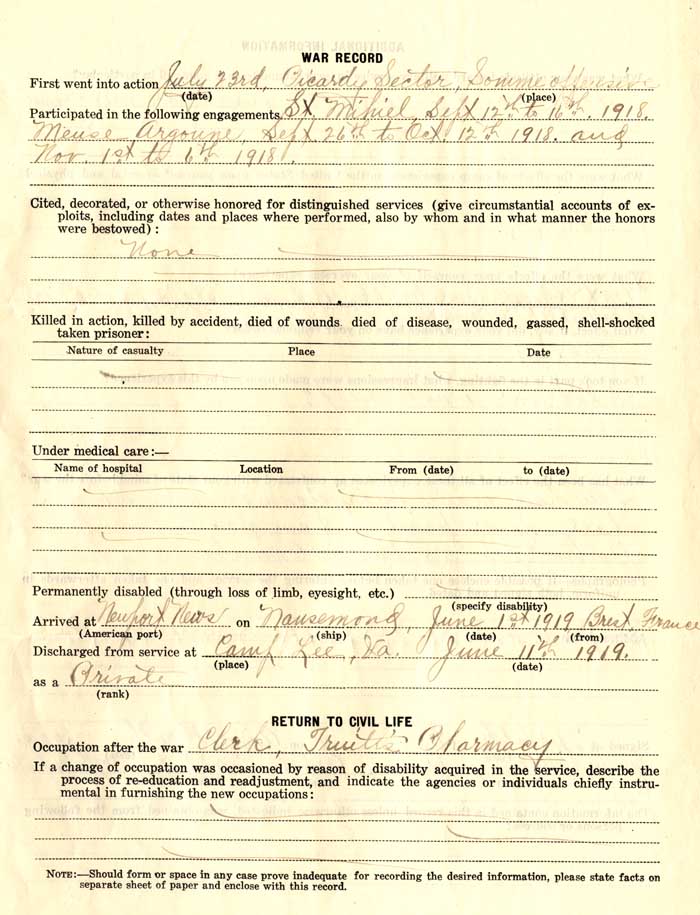 WAR RECORD
First went into action July 23rd, Picardy Sector, Somme offensive
(date) (place)
Participated in the following engagements St. Mihiel, Sept 12th to 16th. 1918.
Meuse Argonne, Sept. 26th to Oct. 12th 1918. and
Nov. 1st to 6th 1918.
Cited, decorated, or otherwise honored for distinguished services (give circumstantial accounts of ex-
ploits, including dates and places where performed, also by whom and in what manner the honors
were bestowed) :
None
Killed in action, killed by accident, died of wounds died of disease, wounded, gassed, shell-shocked
taken prisoner:
Nature of casualty Place Date
Under medical care:—
Name of hospital Location From (date) to (date)
Permanently disabled (through loss of limb, eyesight, etc.)
(specify disability)
Arrived at Newport News on Nausemond, June 1st 1919 Brest, France
(American port) (ship) (date) (from)
Discharged from service at Camp Lee, Va. June 11th 1919.
(place) (date)
as a Private
(rank)
RETURN TO CIVIL LIFE
Occupation after the war Clerk, Truitt's Pharmacy
If a change of occupation was occasioned by reason of disability acquired in the service, describe the
process of re-education and readjustment, and indicate the agencies or individuals chiefly instru-
mental in furnishing the new occupations:
NOTE:—Should form or space in any case prove inadequate for recording the desired information, please state facts on
separate sheet of paper and enclose with this record.